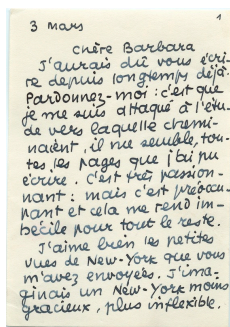 1
3 mars
chère Barbara
J'aurais dû vous écri-
re depuis longtemps déjà.
Pardonnez-moi : c'est que
je me suis attaqué à l'étu-
de vers laquelle chemi-
naient, il me semble, tou-
tes les pages que j'ai pu
écrire. C'est très passion-
nant : mais c'est préoccu-
pant et cela me rend im-
bécile pour tout le reste.
J'aime bien les petites
vues de New-York que vous
m'avez envoyées. J'ima-
ginais un New-York moins
gracieux, plus inflexible.